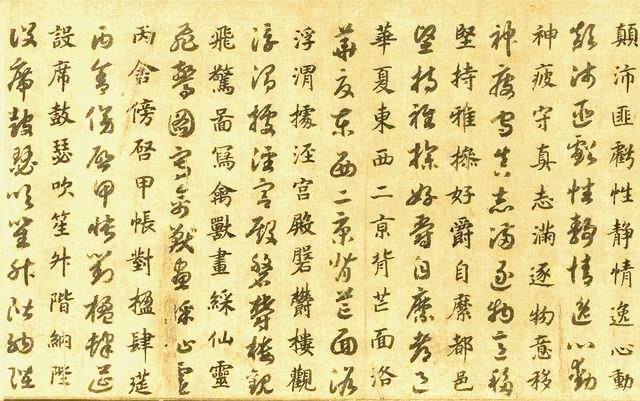 顛沛匪虧性靜情逸心動
顛沛匪虧性靜情逸心動
神疲守真志滿逐物意移
神疲守真志滿逐物意移
堅持雅操好爵自縻都邑
堅持雅操好爵自縻都邑
華夏東西二亰背芒面洛
華夏東西二京背芒面洛
浮渭據涇宮殿磐欝樓觀
浮渭據涇宮殿磐欝樓觀
飛驚啚寫禽獸畫綵仙靈
飛驚圖寫禽獸畫綵仙靈
丙舍傍啓甲帳對楹肆筵
丙舍傍啓甲帳對楹肆筵
設席鼓瑟吹笙升階納陛
設席鼓瑟吹笙升階納陛